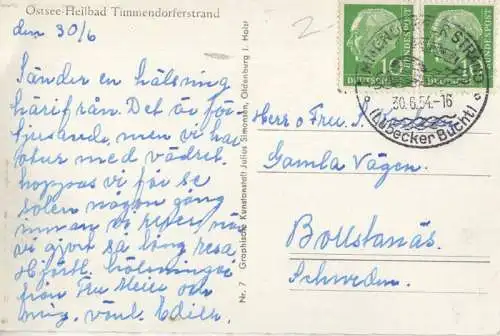 Ostsee-Heilbad Timmendorferstrand
den 30/6
Sänder en hälsning
härifrån. Det är för-
tjusande, men vi har
otur med vädret.
hoppas vi får se
solen någon gång
innan vi reser, när
vi gjort så lång resa
Hjärtl. hälsningar
från Fru Meier och
mig.
Nr. 7 Graphische Kunstanstalt Julius Simonsen, Oldenburg i. Holst
10
DEUTSCHE BUNDESPOST
10
DEUTSCHE BUNDESPOST
30.6.54.-16
(Lübecker Bucht)
Herr o Fru
Gamla Vägen.
Bollstanäs.
Schweden.